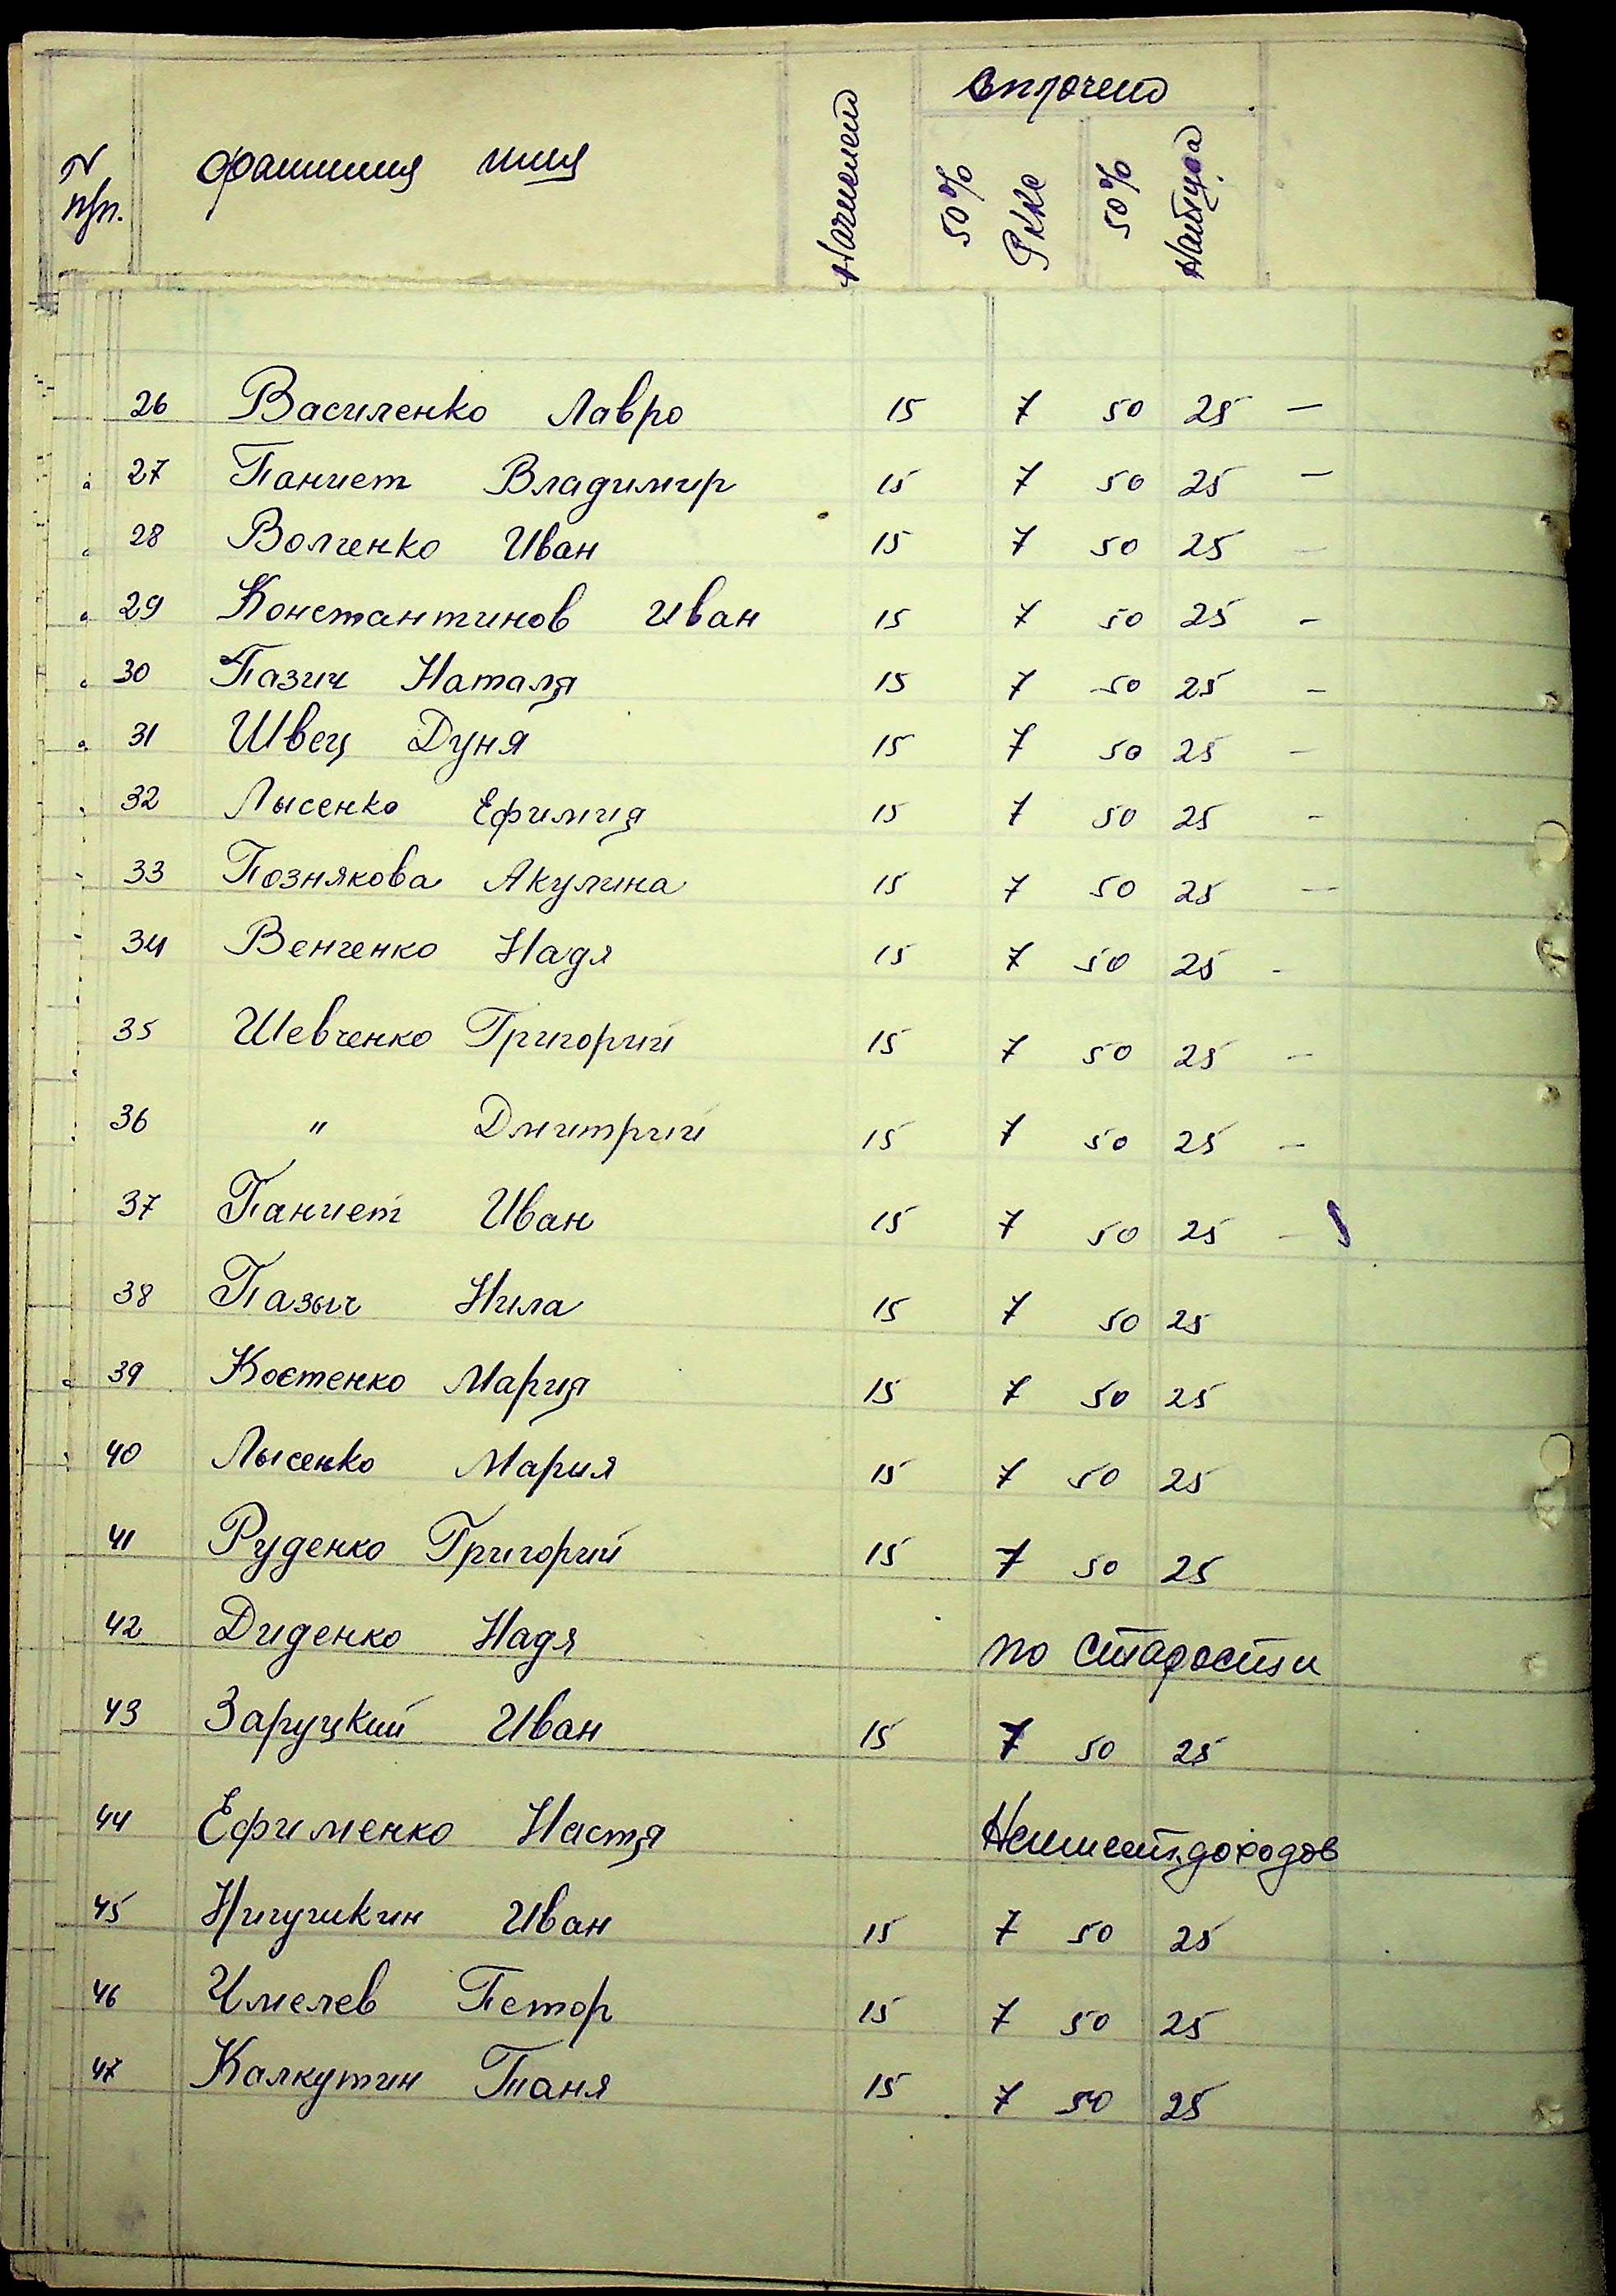 вплочено
N п/п. фамилия имя Начислено 50% РККС 50% Наймода
26 Василенко Лавро 15 7 50 25 —
27 Паниет Владимир 15 7 50 25 —
28 Волченко Иван 15 7 50 25 —
29 Константинов Иван 15 7 50 25 —
30 Пазич Наталя 15 7 50 25 —
31 Швец Дуня 15 7 50 25 —
32 Лысенко Ефимия 15 7 50 25 —
33 Познякова Акулина 15 7 50 25 —
34 Венченко Надя 15 7 50 25 -
35 Шевченко Григорий 15 7 50 25 —
36 " Дмитрий 15 7 50 25 —
37 Паниет Иван 15 7 50 25 —
38 Пазыч Нила 15 7 50 25
39 Костенко Мария 15 7 50 25
40 Лысенко Мария 15 7 50 25
41 Руденко Григорий 15 7 50 25
42 Диденко Надя по старости
43 Заруцкий Иван 15 7 50 25
44 Ефименко Настя Неимеит.доходов
45 Ничушкин Иван 15 7 50 25
46 Имелев Петор 15 7 50 25
47 Калкутин Таня 15 7 50 25